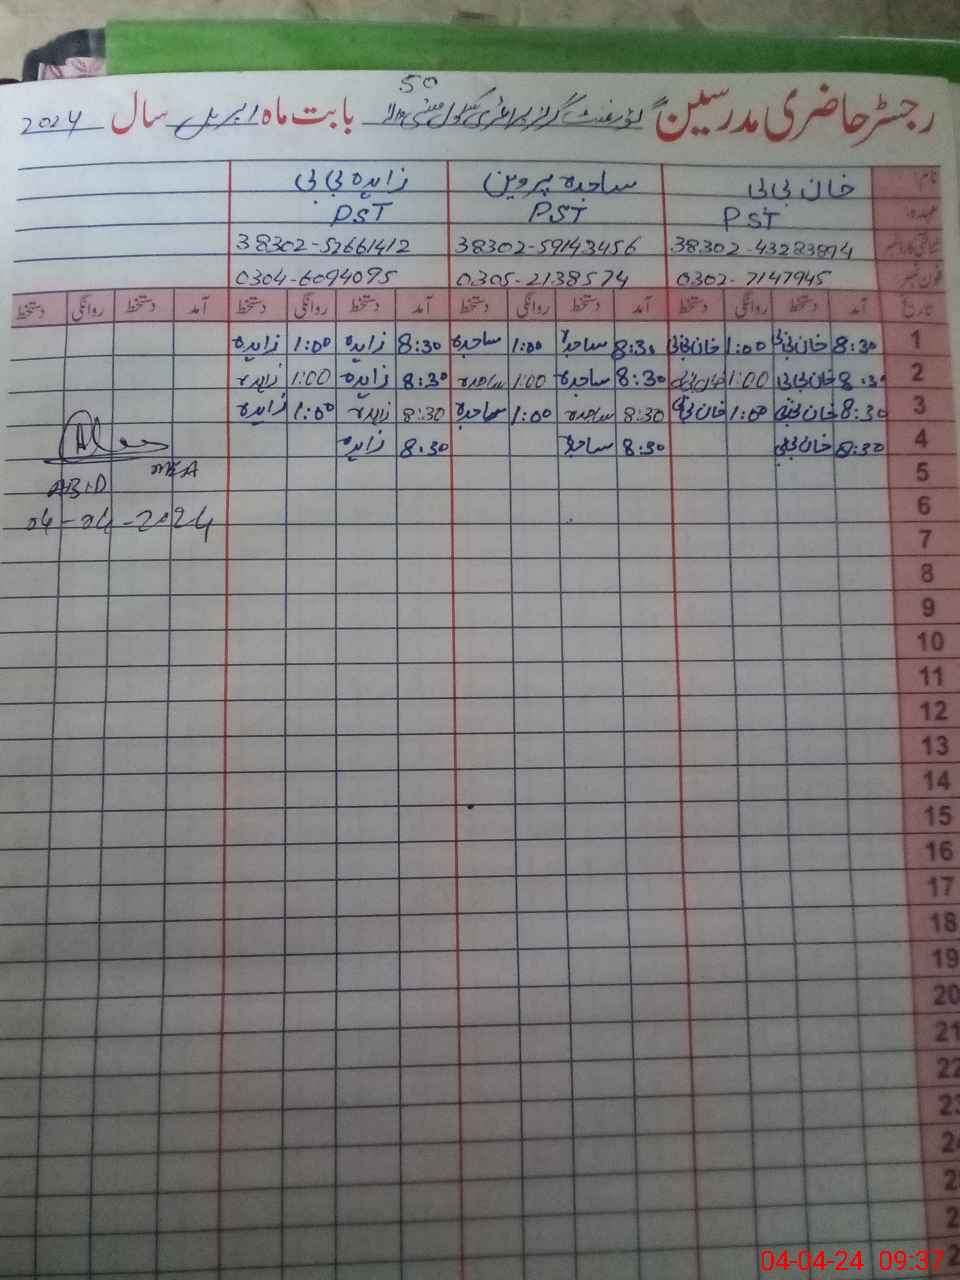 50
رجسٹر حاضری مدرسین گورنمنٹ گرلز پرائمری سکول بابت ماہ اپریل سال 2024
نام خان بی بی ساجدہ پروین زاہدہ بی بی
عہدہ PST PST PST
38302-43283894 38302-59143456 38302-52661412
فون نمبر 0302-7147945 0305-2138574 0304-6094095
تاریخ آمد دستخط روانگی دستخط آمد دستخط روانگی دستخط آمد دستخط روانگی دستخط آمد دستخط روانگی دستخط
1 8:30 خان بی بی 1:00 خان بی بی 8:30 ساجدہ 1:00 ساجدہ 8:30 زاہدہ 1:00 زاہدہ
2 8:30 خان بی بی 1:00 خان بی بی 8:30 ساجدہ 1:00 ساجدہ 8:30 زاہدہ 1:00 زاہدہ
3 8:30 خان بی بی 1:00 خان بی بی 8:30 ساجدہ 1:00 ساجدہ 8:30 زاہدہ 1:00 زاہدہ
4 8:30 خان بی بی 8:30 ساجدہ 8:30 زاہدہ
MEA
ABID
04-04-2024
5
6
7
8
9
10
11
12
13
14
15
16
17
18
19
20
21
22
23
24
2
2
2
04-04-24 09:37